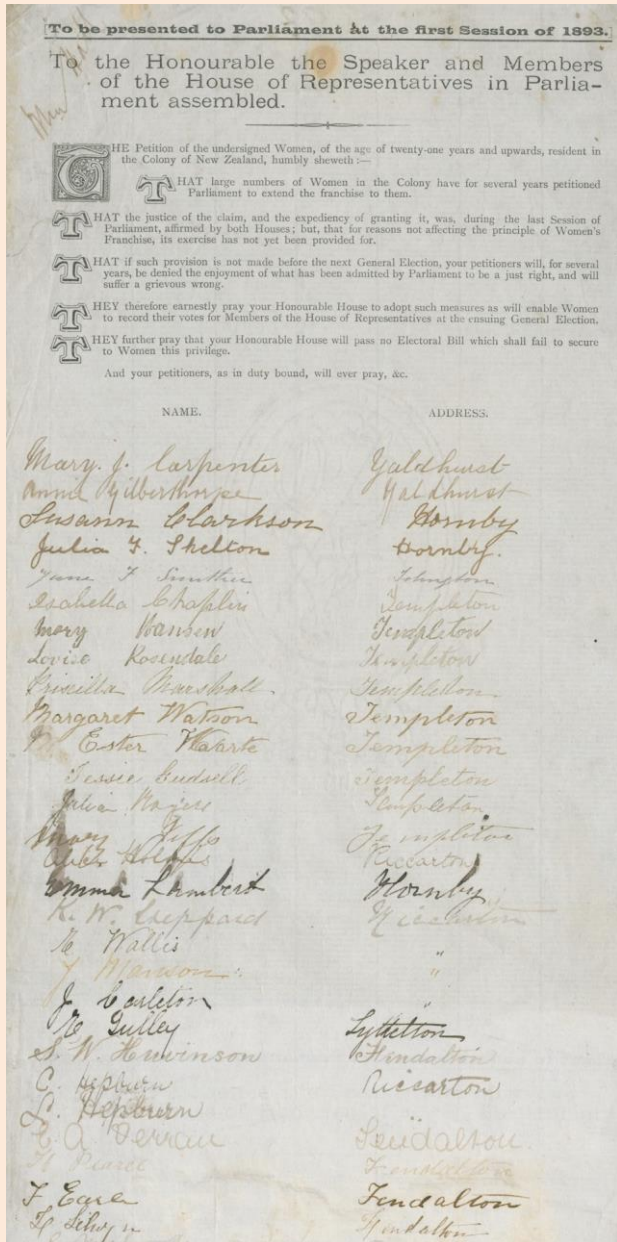 To be presented to Parliament at the first Session of 1893.
To the Honourable the Speaker and Members
of the House of Representatives in Parlia-
ment assembled.
THE Petition of the undersigned Women, of the age of twenty-one years and upwards, resident in
the Colony of New Zealand, humbly sheweth :—
THAT large numbers of Women in the Colony have for several years petitioned
Parliament to extend the franchise to them.
THAT the justice of the claim, and the expediency of granting it, was, during the last Session of
Parliament, affirmed by both Houses; but, that for reasons not affecting the principle of Women's
Franchise, its exercise has not yet been provided for.
THAT if such provision is not made before the next General Election, your petitioners will, for several
years, be denied the enjoyment of what has been admitted by Parliament to be a just right, and will
suffer a grievous wrong.
THEY therefore earnestly pray your Honourable House to adopt such measures as will enable Women
to record their votes for Members of the House of Representatives at the ensuing General Election.
THEY further pray that your Honourable House will pass no Electoral Bill which shall fail to secure
to Women this privilege.
And your petitioners, as in duty bound, will ever pray, &c.
NAME. ADDRESS.
Mary. J. Carpenter Yaldhurst
Annie Gilberthorpe Yaldhurst
Susann Clarkson Hornby
Julia F. Shelton Hornby.
Jane F
Isabella Chaplin Templeton
Mary Hansen Templeton
Rosendale Templeton
Priscilla Marshall Templeton
Margaret Watson Templeton
Ester Templeton
Jessie Templeton
Julia Templeton
Mary
Holmes Riccarton
Emma Lambert Hornby
K. W. Sheppard Riccarton
Wallis "
Manson "
J Carleton "
Gulley Lyttelton
S. W.
C. Hepburn Riccarton
L. Hepburn
Pearce
F Earle Fendalton